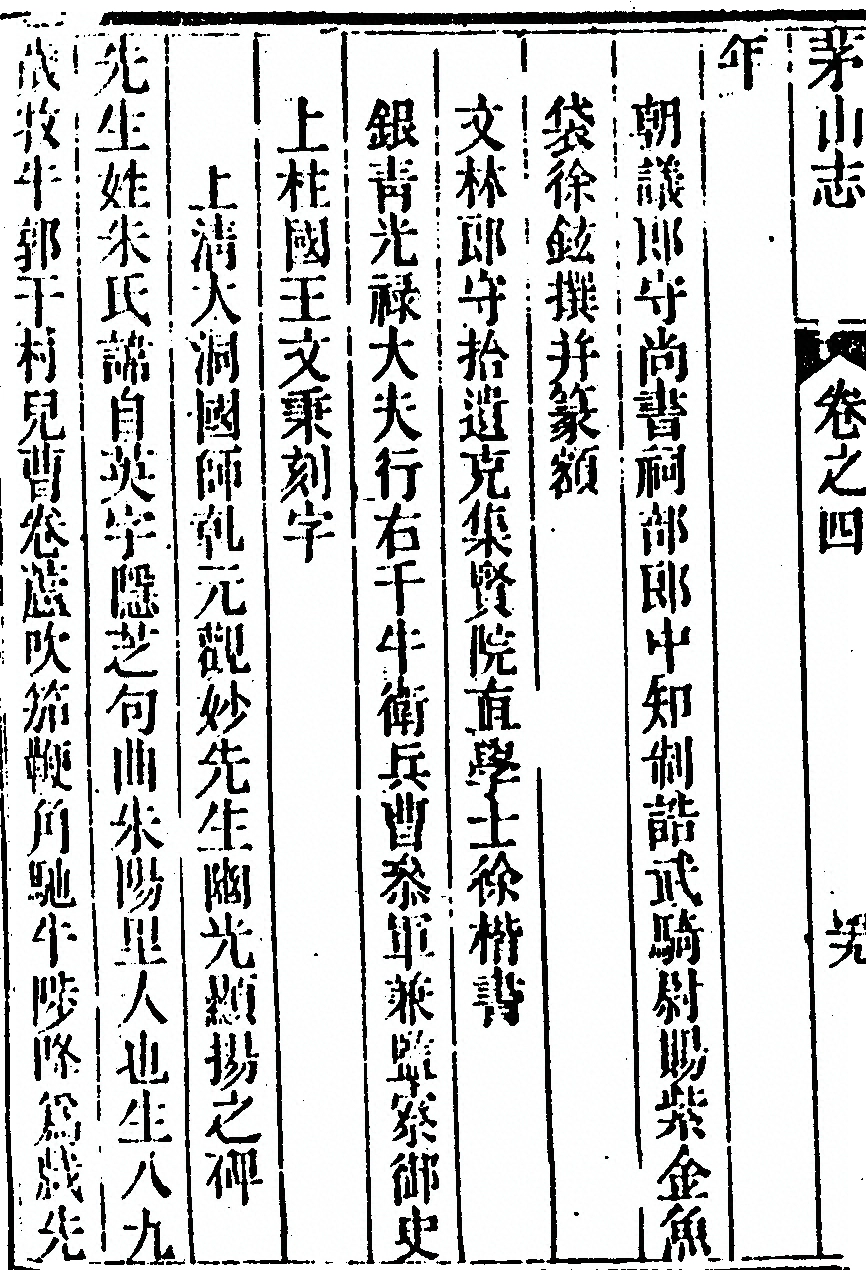 茅山志 卷之四
年
朝議郎守尚書祠部郎中知制誥武騎尉賜紫金魚
袋徐鉉撰并篆額
文林郎守拾遺充集賢院直學士徐楷書
銀青光禄大夫行右千牛衛兵曹叅軍兼監察御史
上柱國王文秉刻字
上清大洞國師乾元觀妙先生幽光顯揚之碑
先生姓朱氏諱自英字隱芝句曲朱陽里人也生八九
歲牧牛郭干村兒曹卷蘆吹笳鞭角馳牛陟降爲戲先